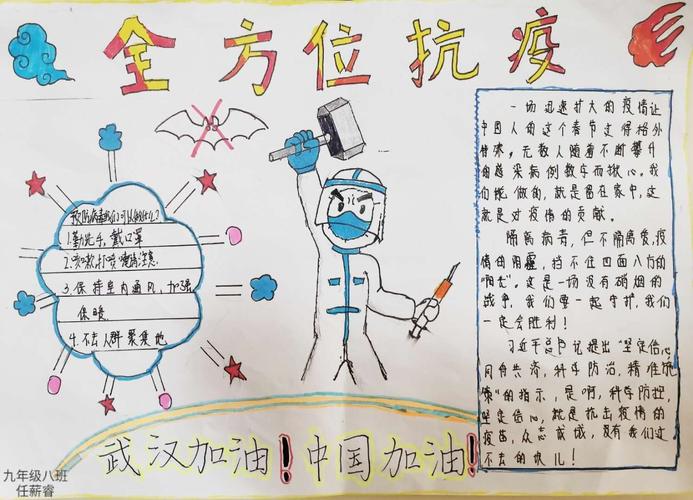 全方位抗疫
预防病毒我们可以做什么?
1.勤洗手,戴口罩
2.咳嗽,打喷嚏请注意.
3.保持室内通风,加强
保暖.
4.不去人群聚集地
一场迅速扩大的疫情让
中国人的这个春节变得格外
特殊。无数人随着不断攀升
的感染病例数字而揪心。我
们能做的,就是留在家中,这
就是对疫情的贡献。
隔离病毒,但不隔离爱,疫
情的阴霾,挡不住四面八方的
"阳光"。这是一场没有硝烟的
战争,我们要一起守护,我们
一定会胜利!
习近平总书记提出"坚定信心
同舟共济,科学防治,精准施
策"的指示,是啊,科学防控,
坚定信心,就是抗击疫情的
疫苗,众志成城,没有我们过
不去的坎儿!
武汉加油!中国加油!
九年级八班
任薪睿